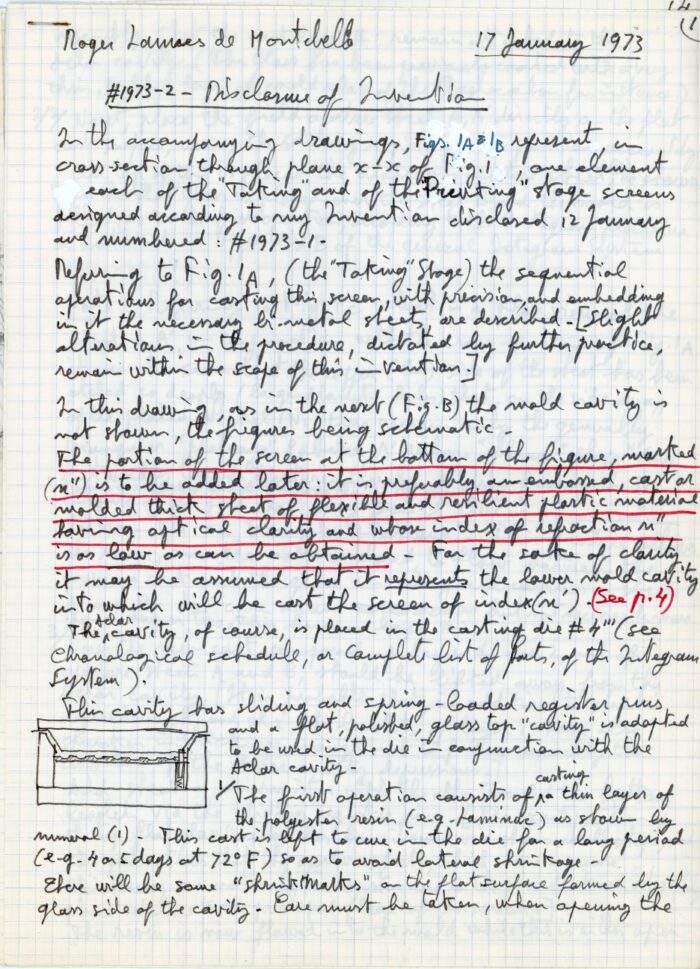 14
(1
Roger Lannes de Montebello 17 January 1973
#1973-2 - Disclosure of Invention
In the accompanying drawings, Figs. 1A & 1B represent, in
cross-section through plane x-x of Fig. 1, one element
each of the "Taking" and of the "Printing" stage screens
designed according to my Invention disclosed 12 January
and numbered: #1973-1-
Referring to Fig. 1A, (the "Taking" Stage) the sequential
operations for casting this screen, with precision, and embedding
in it the necessary bi-metal sheets, are described - [Slight
alterations in the procedure, dictated by further practice,
remain within the scope of this invention.]
In this drawing, as in the next (Fig. B) the mold cavity is
not shown, the figures being schematic -
The portion of the screen at the bottom of the figure, marked
(n") is to be added later: it is preferably an embossed, cast or
molded thick sheet of flexible and resilient plastic material
having optical clarity and whose index of refraction n"
is as low as can be obtained - For the sake of clarity
it may be assumed that it represents the lower mold cavity
into which will be cast the screen of index (n') - (See p. 4)
The Aclar cavity, of course, is placed in the casting die #4''' (see
Chronological schedule, or Complete list of parts, of the Integram
System).
This cavity has sliding and spring-loaded register pins
and a flat, polished, glass top "cavity" is adapted
to be used in the die in conjunction with the
Aclar cavity -
1/ The first operation consists of casting a thin layer of
the polyester resin (e.g. Laminac) as shown by
numeral (1) - This cast is left to cure in the die for a long period
(e.g. 4 or 5 days at 72° F) so as to avoid lateral shrinkage -
Else will be some "shrink marks" on the flat surface formed by the
glass side of the cavity - Care must be taken, when opening the